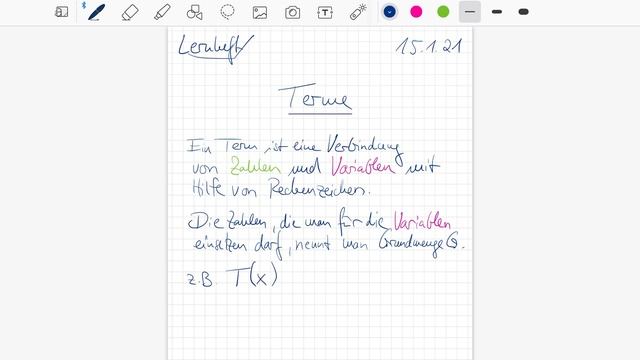 Lernheft 15.1.21
Terme
Ein Term ist eine Verbindung
von Zahlen und Variablen mit
Hilfe von Rechenzeichen.
Die Zahlen, die man für die Variablen
einsetzen darf, nennt man Grundmenge G.
z.B T(x)